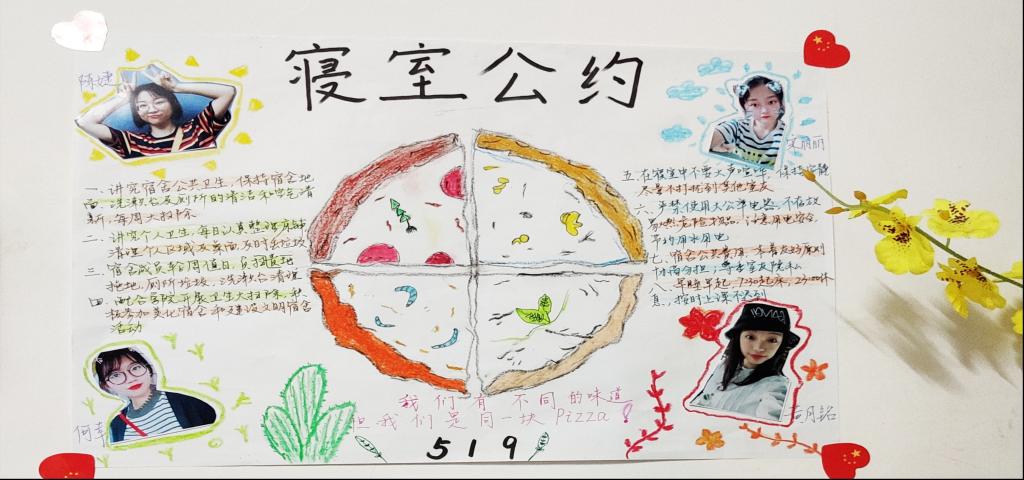 寝室公约
陈婕
文丽丽
一、讲究宿舍公共卫生,保持宿舍地
面、洗漱台及厕所的清洁和空气清
新,每周大扫除
二、讲究个人卫生,每日认真整理床铺
清理个人区域及桌面,及时丢垃圾
三、宿舍成员轮周值日,负责扫地
拖地,厕所垃圾、洗漱台清理
四、配合学院开展卫生大扫除,积
极参加美化宿舍和建设文明宿舍
活动
五、在寝室中不要大声喧哗,保持安静
尽量不打扰到其他室友
六、严禁使用大功率电器,不存放
易燃危险物品,注意用电安全,
节约用水用电
七、宿舍公共费用,本着友好原则
协商分担,尊重室友隐私
八、早睡早起,7:30起床,23:00休
息,按时上课不迟到
何幸
月铭
我们有不同的味道
但我们是同一块Pizza!
519